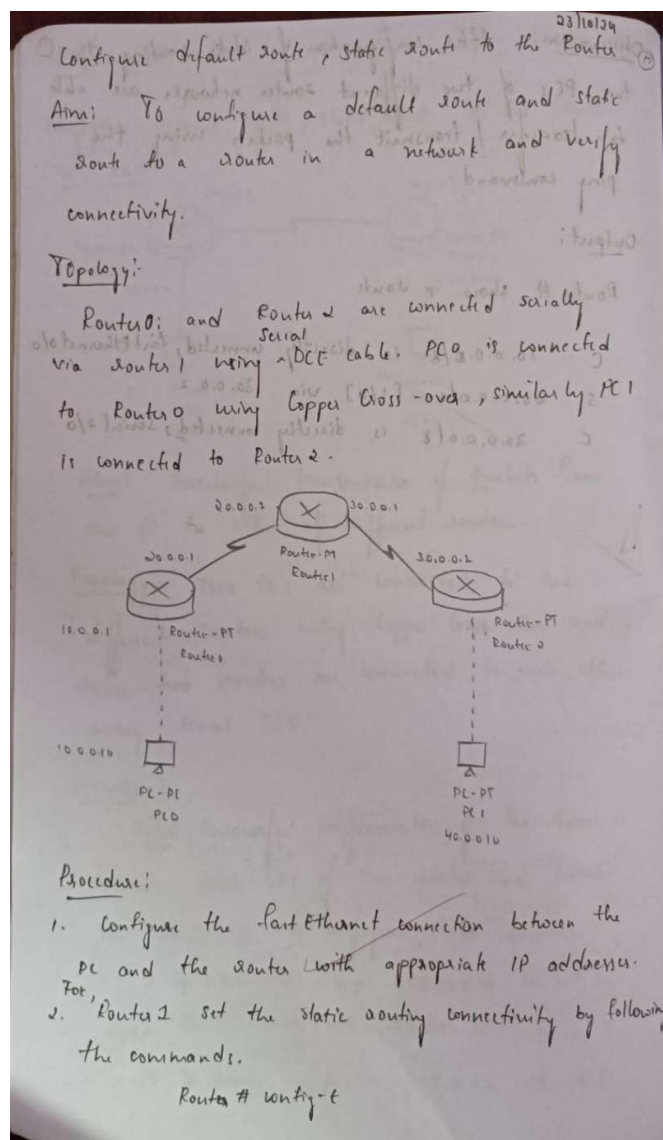 23/10/24
Configure default route, static route to the Router
Aim: To configure a default route and static
route to a router in a network and verify
connectivity.
Topology:-
Router0: and Router 2 are connected serially
via router 1 using ^ DCE cable. PC0 is connected
serial
to Router0 using Copper Cross-over, similarly PC1
is connected to Router 2.
20.0.0.2 30.0.0.1
Router-PT
Router1
20.0.0.1 30.0.0.2
10.0.0.1 Router-PT Router-PT
Router0 Router 2
10.0.0.10
PC-PT PC-PT
PC0 PC1
40.0.0.10
Procedure:
1. Configure the fast Ethernet connection between the
PC and the router with appropriate IP addresses.
For,
2. Router 1 set the static routing connectivity by following
the commands.
Router # config-t